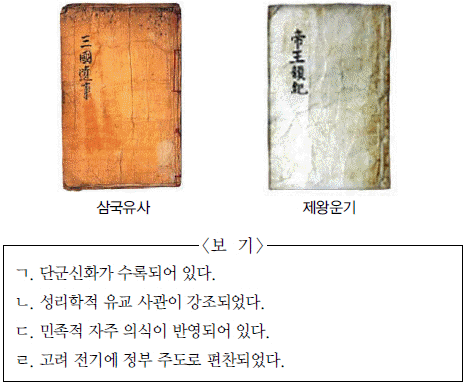 三國遺事
帝王韻紀
삼국유사
제왕운기
〈보 기〉
ㄱ. 단군신화가 수록되어 있다.
ㄴ. 성리학적 유교 사관이 강조되었다.
ㄷ. 민족적 자주 의식이 반영되어 있다.
ㄹ. 고려 전기에 정부 주도로 편찬되었다.